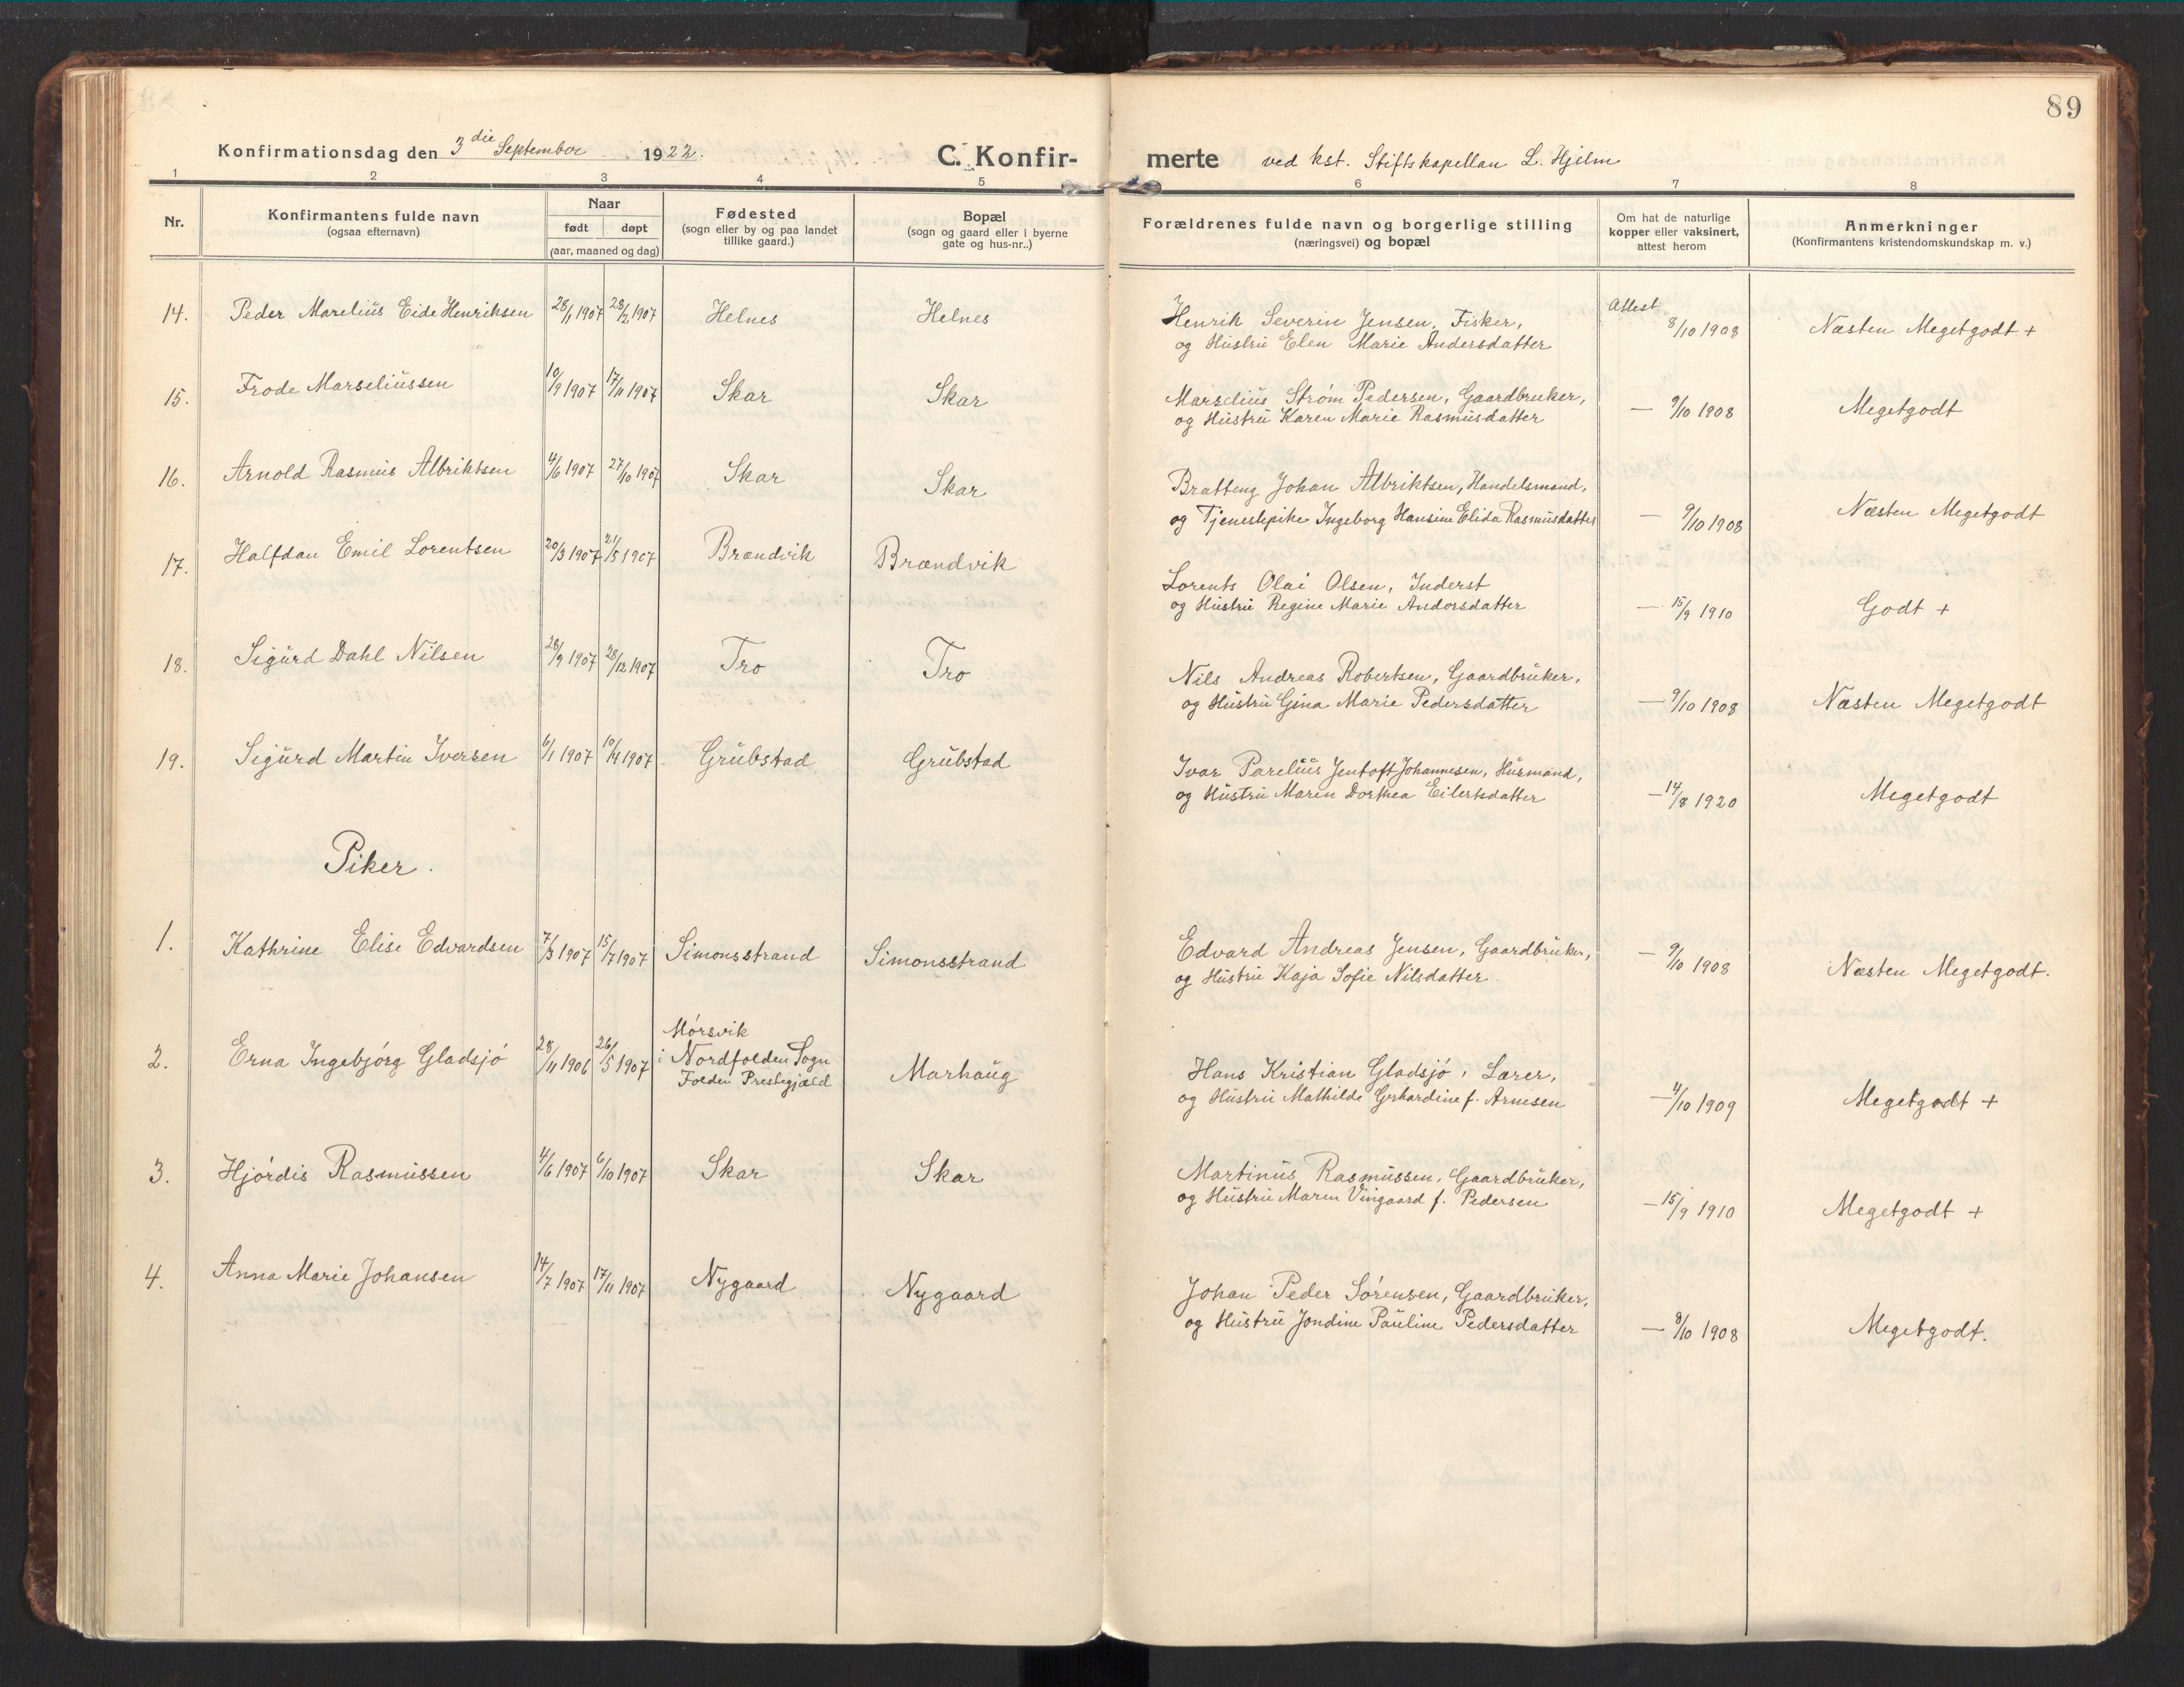 89
Konfirmationsdag den 3die September 1922. C. Konfir-
merte ved kst. Stiftskapellan L. Hjelm
1 2 3 4 5 6 7 8
Nr.
Konfirmantens fulde navn
(ogsaa efternavn)
Naar
født døpt
(aar, maaned og dag)
Fødested
(sogn eller by og paa landet
tillike gaard.)
Bopæl
(sogn og gaard eller i byerne
gate og hus-nr..)
Forældrenes fulde navn og borgerlige stilling
(næringsvei) og bopæl
Om hat de naturlige
kopper eller vaksinert,
attest herom
Anmerkninger
(Konfirmantens kristendomskundskap m. v.)
14. Peder Marelius Eide Henriksen 28/1 1907 28/2 1907 Helnes Helnes
Henrik Severin Jensen, Fisker,
og Hustru Elen Marie Andersdatter
Attest 8/10 1908 Næsten Megetgodt +
15. Frode Marseliussen 10/9 1907 17/11 1907 Skar Skar
Marselius Strøm Pedersen, Gaardbruker,
og Hustru Karen Marie Rasmusdatter
— 9/10 1908 Megetgodt
16. Arnold Rasmus Albriktsen 4/6 1907 27/10 1907 Skar Skar
Bratteng Johan Albriktsen, Handelsmand,
og Tjenestepike Ingeborg Hansine Elida Rasmusdatter
— 9/10 1908 Næsten Megetgodt
17. Halfdan Emil Lorentsen 20/3 1907 21/5 1907 Brændvik Brændvik
Lorents Olai Olsen, Inderst
og Hustru Regine Marie Andorsdatter
— 15/9 1910 Godt +
18. Sigurd Dahl Nilsen 28/9 1907 28/12 1907 Tro Tro
Nils Andreas Robertsen, Gaardbruker,
og Hustru Gina Marie Pedersdatter
— 9/10 1908 Næsten Megetgodt
19. Sigurd Martin Iversen 6/1 1907 10/4 1907 Grubstad Grubstad
Ivar Parelius Jentoft Johannesen, Husmand,
og Hustru Maren Dorthea Eilertsdatter
— 14/8 1920 Megetgodt
Piker.
1. Kathrine Elise Edvardsen 7/3 1907 15/7 1907 Simonsstrand Simonsstrand
Edvard Andreas Jensen, Gaardbruker,
og Hustru Kaja Sofie Nilsdatter.
— 9/10 1908 Næsten Megetgodt.
2. Erna Ingebjørg Gladsjø 28/11 1906 26/5 1907
Mørsvik
i Nordfolden Sogn
Folden Prestegjæld
Marhaug
Hans Kristian Gladsjø, Lærer,
og Hustru Mathilde Gerhardine f. Arnesen
— 4/10 1909 Megetgodt +
3. Hjørdis Rasmussen 4/6 1907 6/10 1907 Skar Skar
Martinus Rasmussen, Gaardbruker,
og Hustru Maren Vingaard f. Pedersen
— 15/9 1910 Megetgodt +
4. Anna Marie Johansen 14/7 1907 17/11 1907 Nygaard Nygaard
Johan Peder Sørensen, Gaardbruker,
og Hustru Jondine Pauline Pedersdatter
— 8/10 1908 Megetgodt.